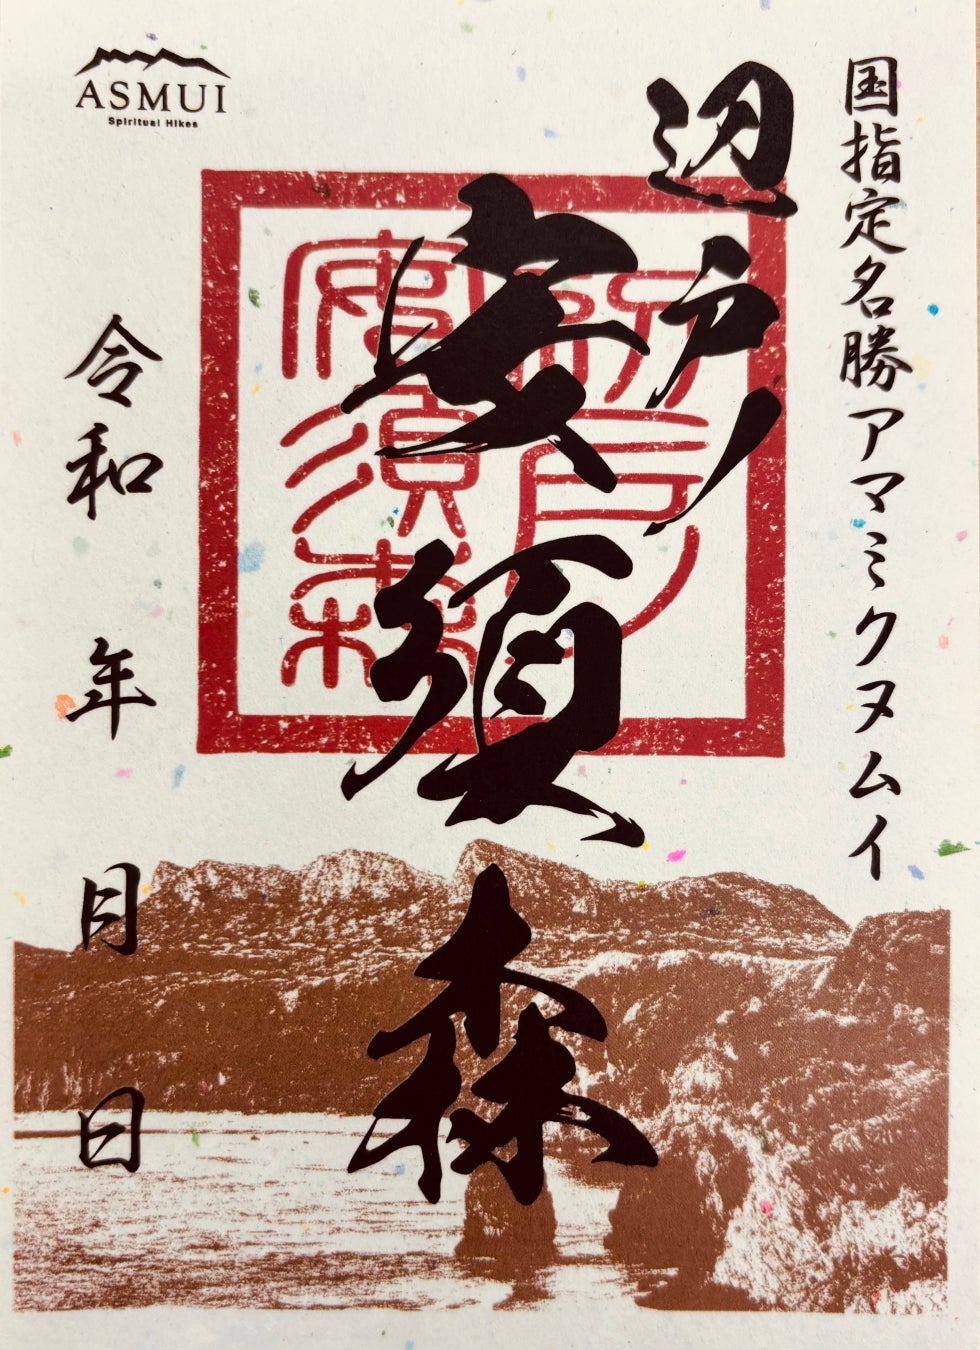 国指定名勝アマミクヌムイ
辺戸ノ
安須森
令和 年 月 日
ASMUI
Spiritual Hikes